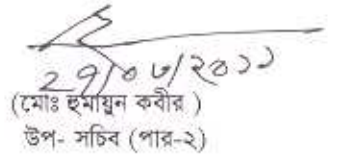 ২৭/০৬/২০১১
(মোঃ হুমায়ুন কবীর )
উপ- সচিব (পার-২)